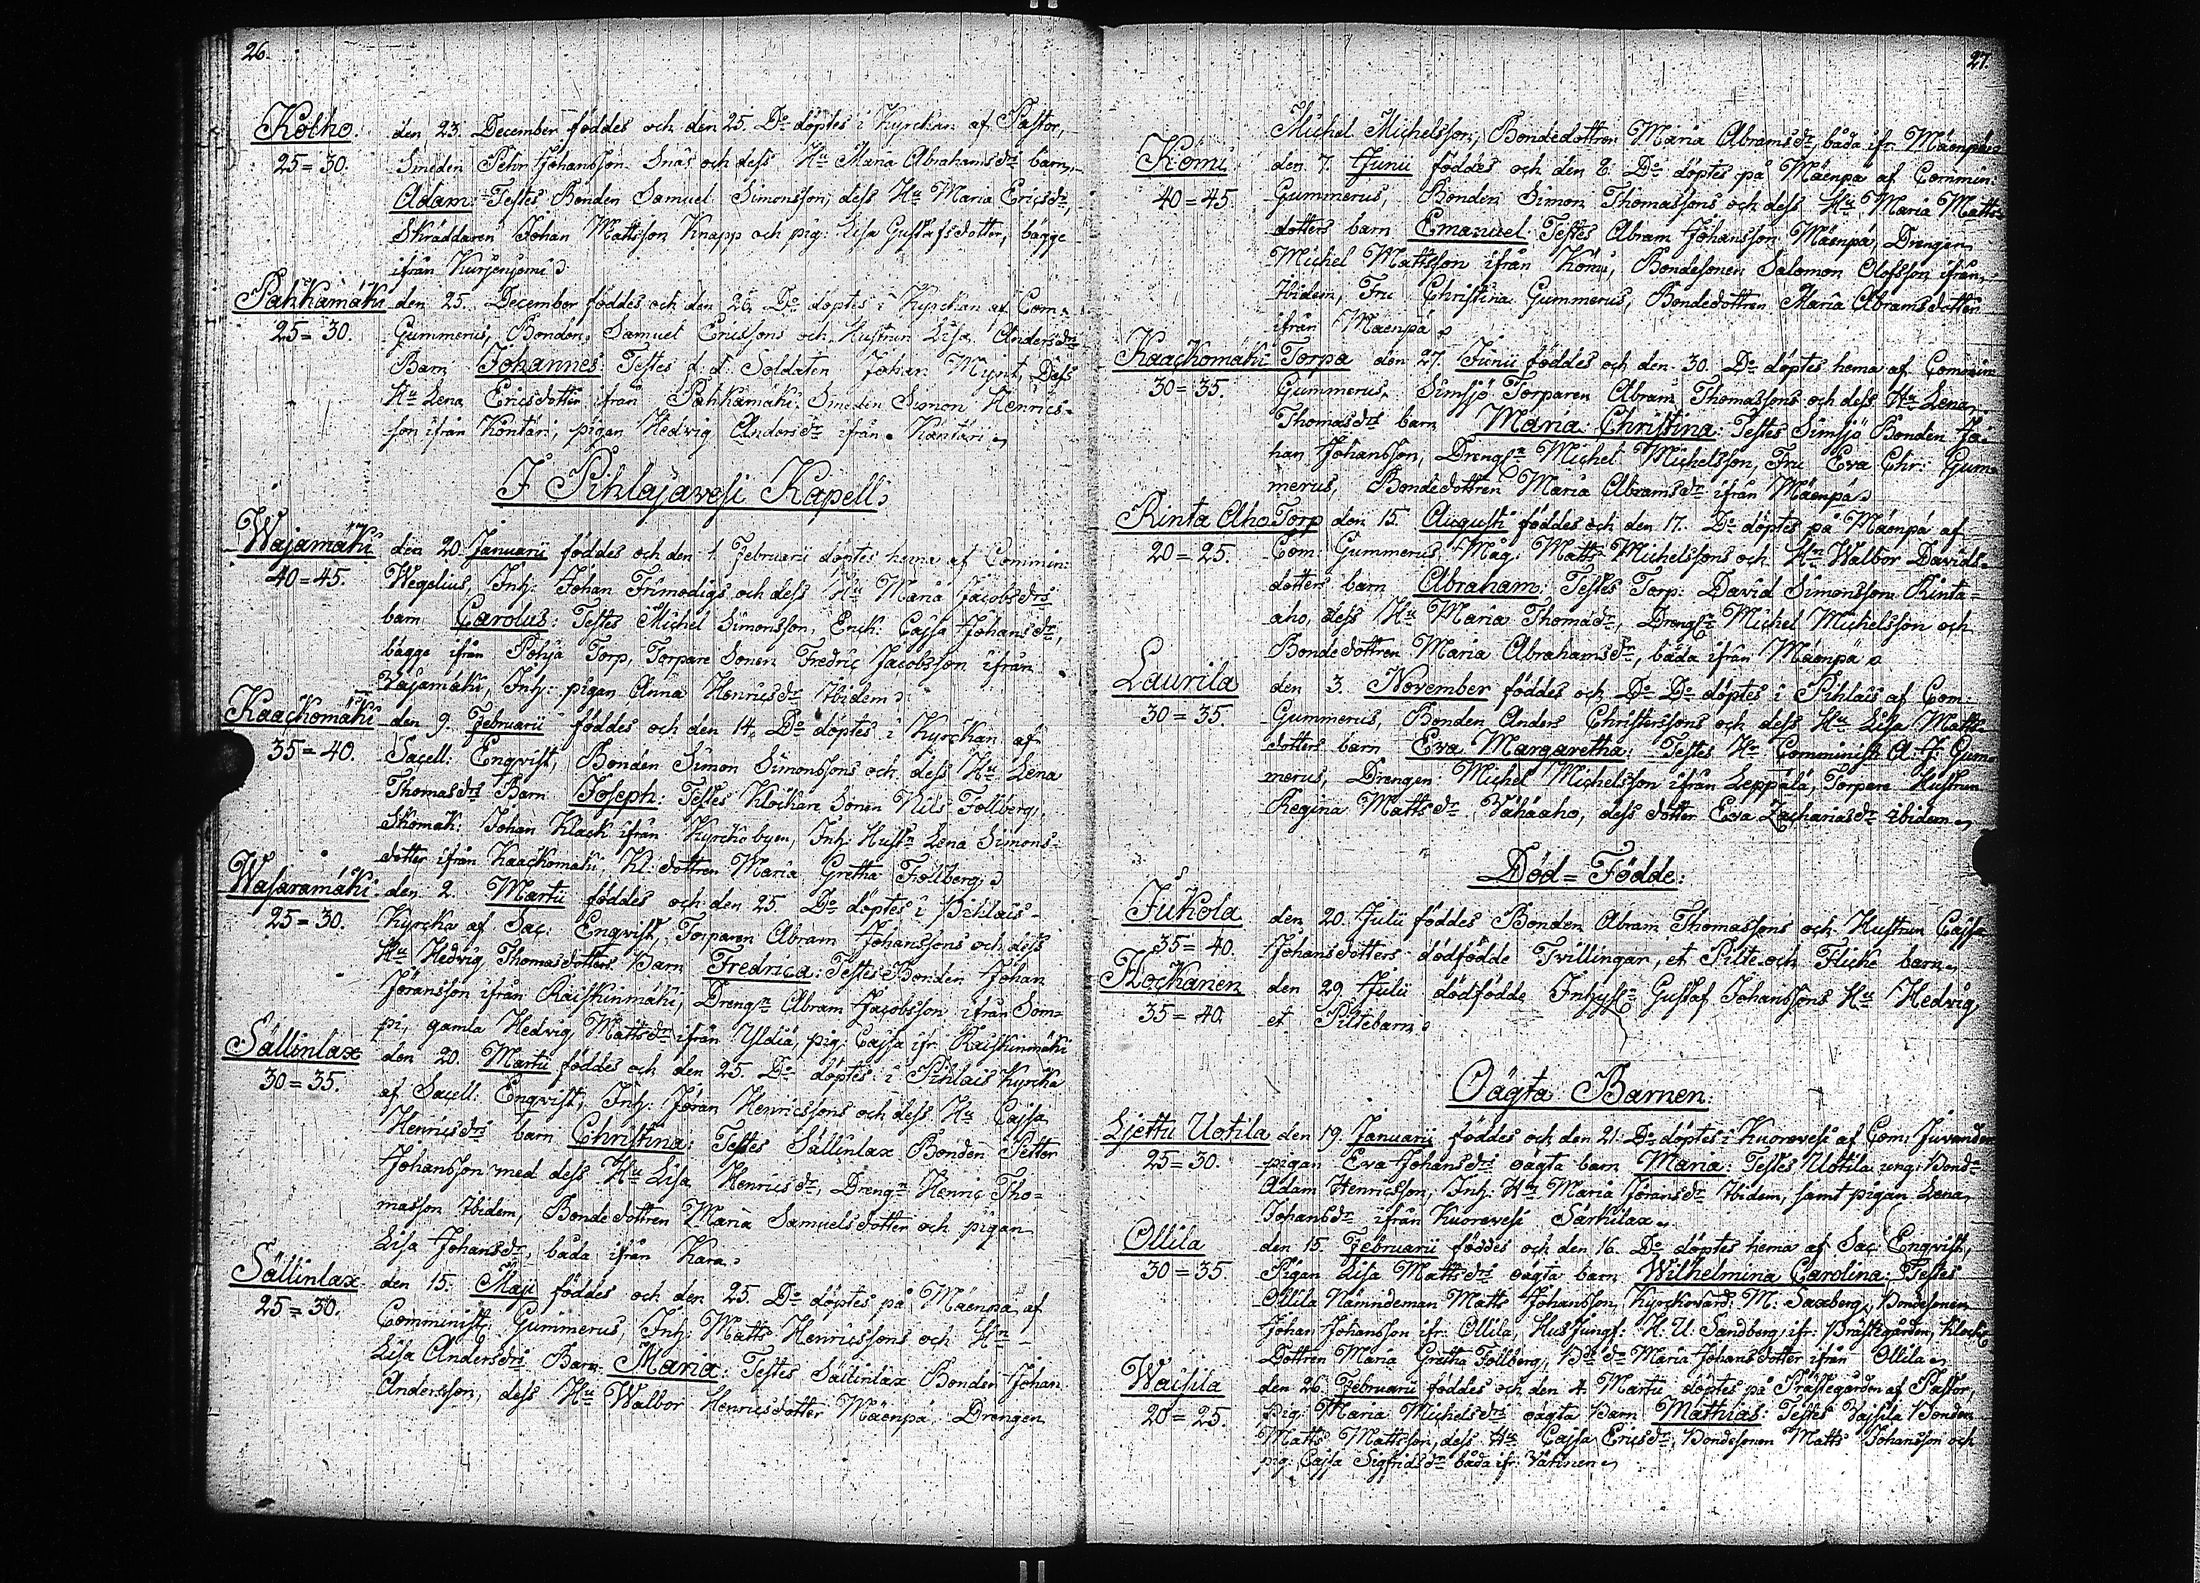 26.
Kolho. den 23. December föddes och den 25. Do döptes i Kyrckan af Pastor,
25=30. Smeden Petter Johansson Snäs och dess Hu Maria Abrahamsdrs barn
Adam: Testes Bonden Samuel Simonsson, dess Hu Maria Ericsdr,
Skräddaren Johan Mattsson Knapp och pig: Lisa Gustafsdotter, bägge
ifrån Kurjenjemi
Pahkamäki den 25. December föddes och den 26. Do döptes i Kyrckan af Com:
25=30. Gummerus, Bonden Samuel Ericssons och Hustrun Lisa Andersdrs
Barn Johannes: Testes f. d. Soldaten Johan Mynt, Dess
Hu Lena Ericsdotter ifrån Pahkamäki. Smeden Simon Henrics-
son ifrån Köntäri, pigan Hedvig Andersdr ifrån Käntäri
I Pihlajavesi Kapell.
Wajamäki den 20. Januarii föddes och den 1. Februarii döptes hema af Commin:
40=45. Wegelius, Inh: Johan Frimodigs och dess Hu Maria Jacobsdrs
barn Carolus: Testes Michel Simonsson, Enck: Cajsa Johansdr,
bägge ifrån Pohja Torp, Torpare Sonen Fredric Jacobsson ifrån
Vajamäki, Inh: pigan Anna Henricsdr Ibidem
Kaackomäki den 9. Februarii föddes och den 14. Do döptes i Kyrckan af
35=40. Sacell: Enqvist, Bonden Simon Simonssons och dess Hu Lena
Thomasdrs Barn Joseph: Testes Klockare Sonen Nils Follberg,
Skomak: Johan Klack ifrån Kyrcko byen, Inh: Hustr Lena Simons-
dotter ifrån Kaackomäki, Kl: dottren Maria Gretha Follberg
Wasaramäki den 2. Martii föddes och den 25. Do döptes i Pihlais-
25=30. Kyrcka af Sac: Enqvist, Torparen Abram Johanssons och dess
Hu Hedvig Thomasdotters Barn Fredrica: Testes Bonden Johan
Jöransson ifrån Raiskinmäki, Drengn Abram Jacobsson ifrån Som-
pi, gamla Hedvig Mattsdr ifrån Yldiä, pig: Cajsa ifr. Raiskinmäki
Sällinlax den 20. Martii föddes och den 25. Do döptes i Pihlais Kyrcka
30=35. af Sacell: Enqvist, Inh: Jöran Henricssons och dess Hu Cajsa
Henricsdrs barn Christina: Testes Sällinlax Bonden Petter
Johansson med dess Hu Lisa Henricsdr, Drengn Henric Tho-
masson Ibidem, Bonde dottren Maria Samuelsdotter och pigan
Lisa Johansdr, båda ifrån Kara
Sällinlax den 15. Maji föddes och den 25. Do döptes på Mäenpä af
25=30. Comminist: Gummerus, Inh: Matts Henricssons och Hu
Lisa Andersdrs Barn Maria: Testes Sällinlax Bonden Johan
Andersson, dess Hu Walbor Henricsdotter Mäenpä. Drengen
27.
Michel Michelsson, Bondedottren Maria Abramsdr, båda ifr. Mäenpää
Kömi den 7. Junii föddes och den 8. Do döptes på Mäenpä af Commin:
40=45. Gummerus, Bonden Simon Thomassons och dess Hu Maria Matts-
dotters barn Emanuel: Testes Abram Johansson Mäenpä, Drengen
Michel Mattsson ifrån Kömi, Bondesonen Salomon Olofsson ifrån
Ibidem, Fru Christina Gummerus, Bondedottren Maria Abramsdotter
ifrån Mäenpä
Kaackomäki Torpa den 27. Junii föddes och den 30. Do döptes hema af Commin
30=35. Gummerus, Simsjö Torparen Abram Thomassons och dess Hu Lena
Thomasdrs barn Maria Christina: Testes Simsjö Bonden Jo-
han Johansson, Drengn Michel Michelsson, Fru Eva Chr: Gum-
merus, Bondedottren Maria Abramsdr ifrån Mäenpä
Rinta Aho Torp den 15. Augusti föddes och den 17. Do döptes på Mäenpä af
20=25. Com: Gummerus Måg: Matts Michelssons och Hu Walbor Davids-
dotters barn Abraham: Testes Torp: David Simonsson Rinta-
aho, dess Hu Maria Thomädr, Drengn Michel Michelsson och
Bondedottren Maria Abrahamsdr, båda ifrån Mäenpä
Laurila den 3. November föddes och Do Do döptes i Pihlais af Com:
30=35. Gummerus, Bonden Anders Christerssons och dess Hu Lisa Matts-
dotters barn Eva Margaretha: Testes Hr Comminist: A. J. Gum-
merus, Drengen Michel Michelsson ifrån Leppälä, Torpare Hustrun
Regina Mattsdr Vähäaho, dess dotter Eva Zachariasdr ibidem
Död=Födde:
Jukola den 20. Julii föddes Bonden Abram Thomassons och Hustrun Cajsa
35=40. Johansdotters dödfödde Tvillingar, et Pilte och Flicke barn
Hockanen den 29. Julii dödfödde Inhyss Gustaf Johanssons Hu Hedvig
35=40. et Piltebarn
Oägta Barnen:
Ljettu Uotila den 19. Januarii föddes och den 21. Do döptes i Kuorevesi af Com: Juvander
25=30. pigan Eva Johansdrs oägta barn Maria: Testes Uotila ung: Bond:
Adam Henricsson, Inh: Hu Maria Jöransdr Ibidem, samt pigan Lena
Johansdr ifrån Kuorevesi Särkilax
Ollila den 15. Februarii föddes och den 16. Do döptes hema af Sac: Enqvist,
30=35. Pigan Lisa Mattsdrs oägta barn Wilhelmina Carolina: Testes
Ollila Nämndeman Matts Johansson, Kyrckovärd: M: Saxberg, Bondesonen
Johan Johansson ifr: Ollila, HusJungf: H: U: Sandberg, ifr: Prästegården, Klock:
Dottren Maria Gretha Follberg, Bde dr Maria Johansdotter ifrån Ollila
Waisila den 26. Februarii föddes och den 4. Martii döptes på Prästegården af Pastor,
20=25. pig: Maria Michelsdrs oägta Barn Mathias: Testes Vajsila Bonden
Matts Mattsson, dess Hu Cajsa Ericsdr, Bondesonen Matts Johansson och
pig: Cajsa Sigfridsdr båda ifr: Vätinen